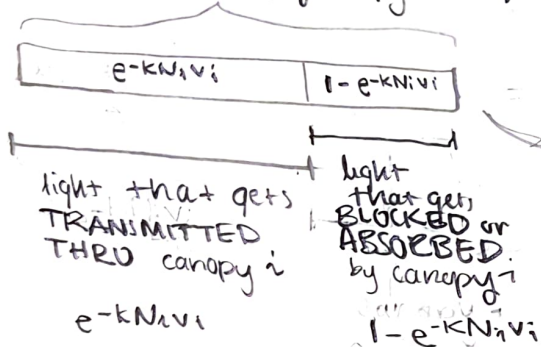 e-kNiVi
1 - e-kNiVi
light that gets
TRANSMITTED
THRU canopy i
e-kNiVi
light
that gets
BLOCKED or
ABSORBED
by canopy i
1 - e-kNiVi